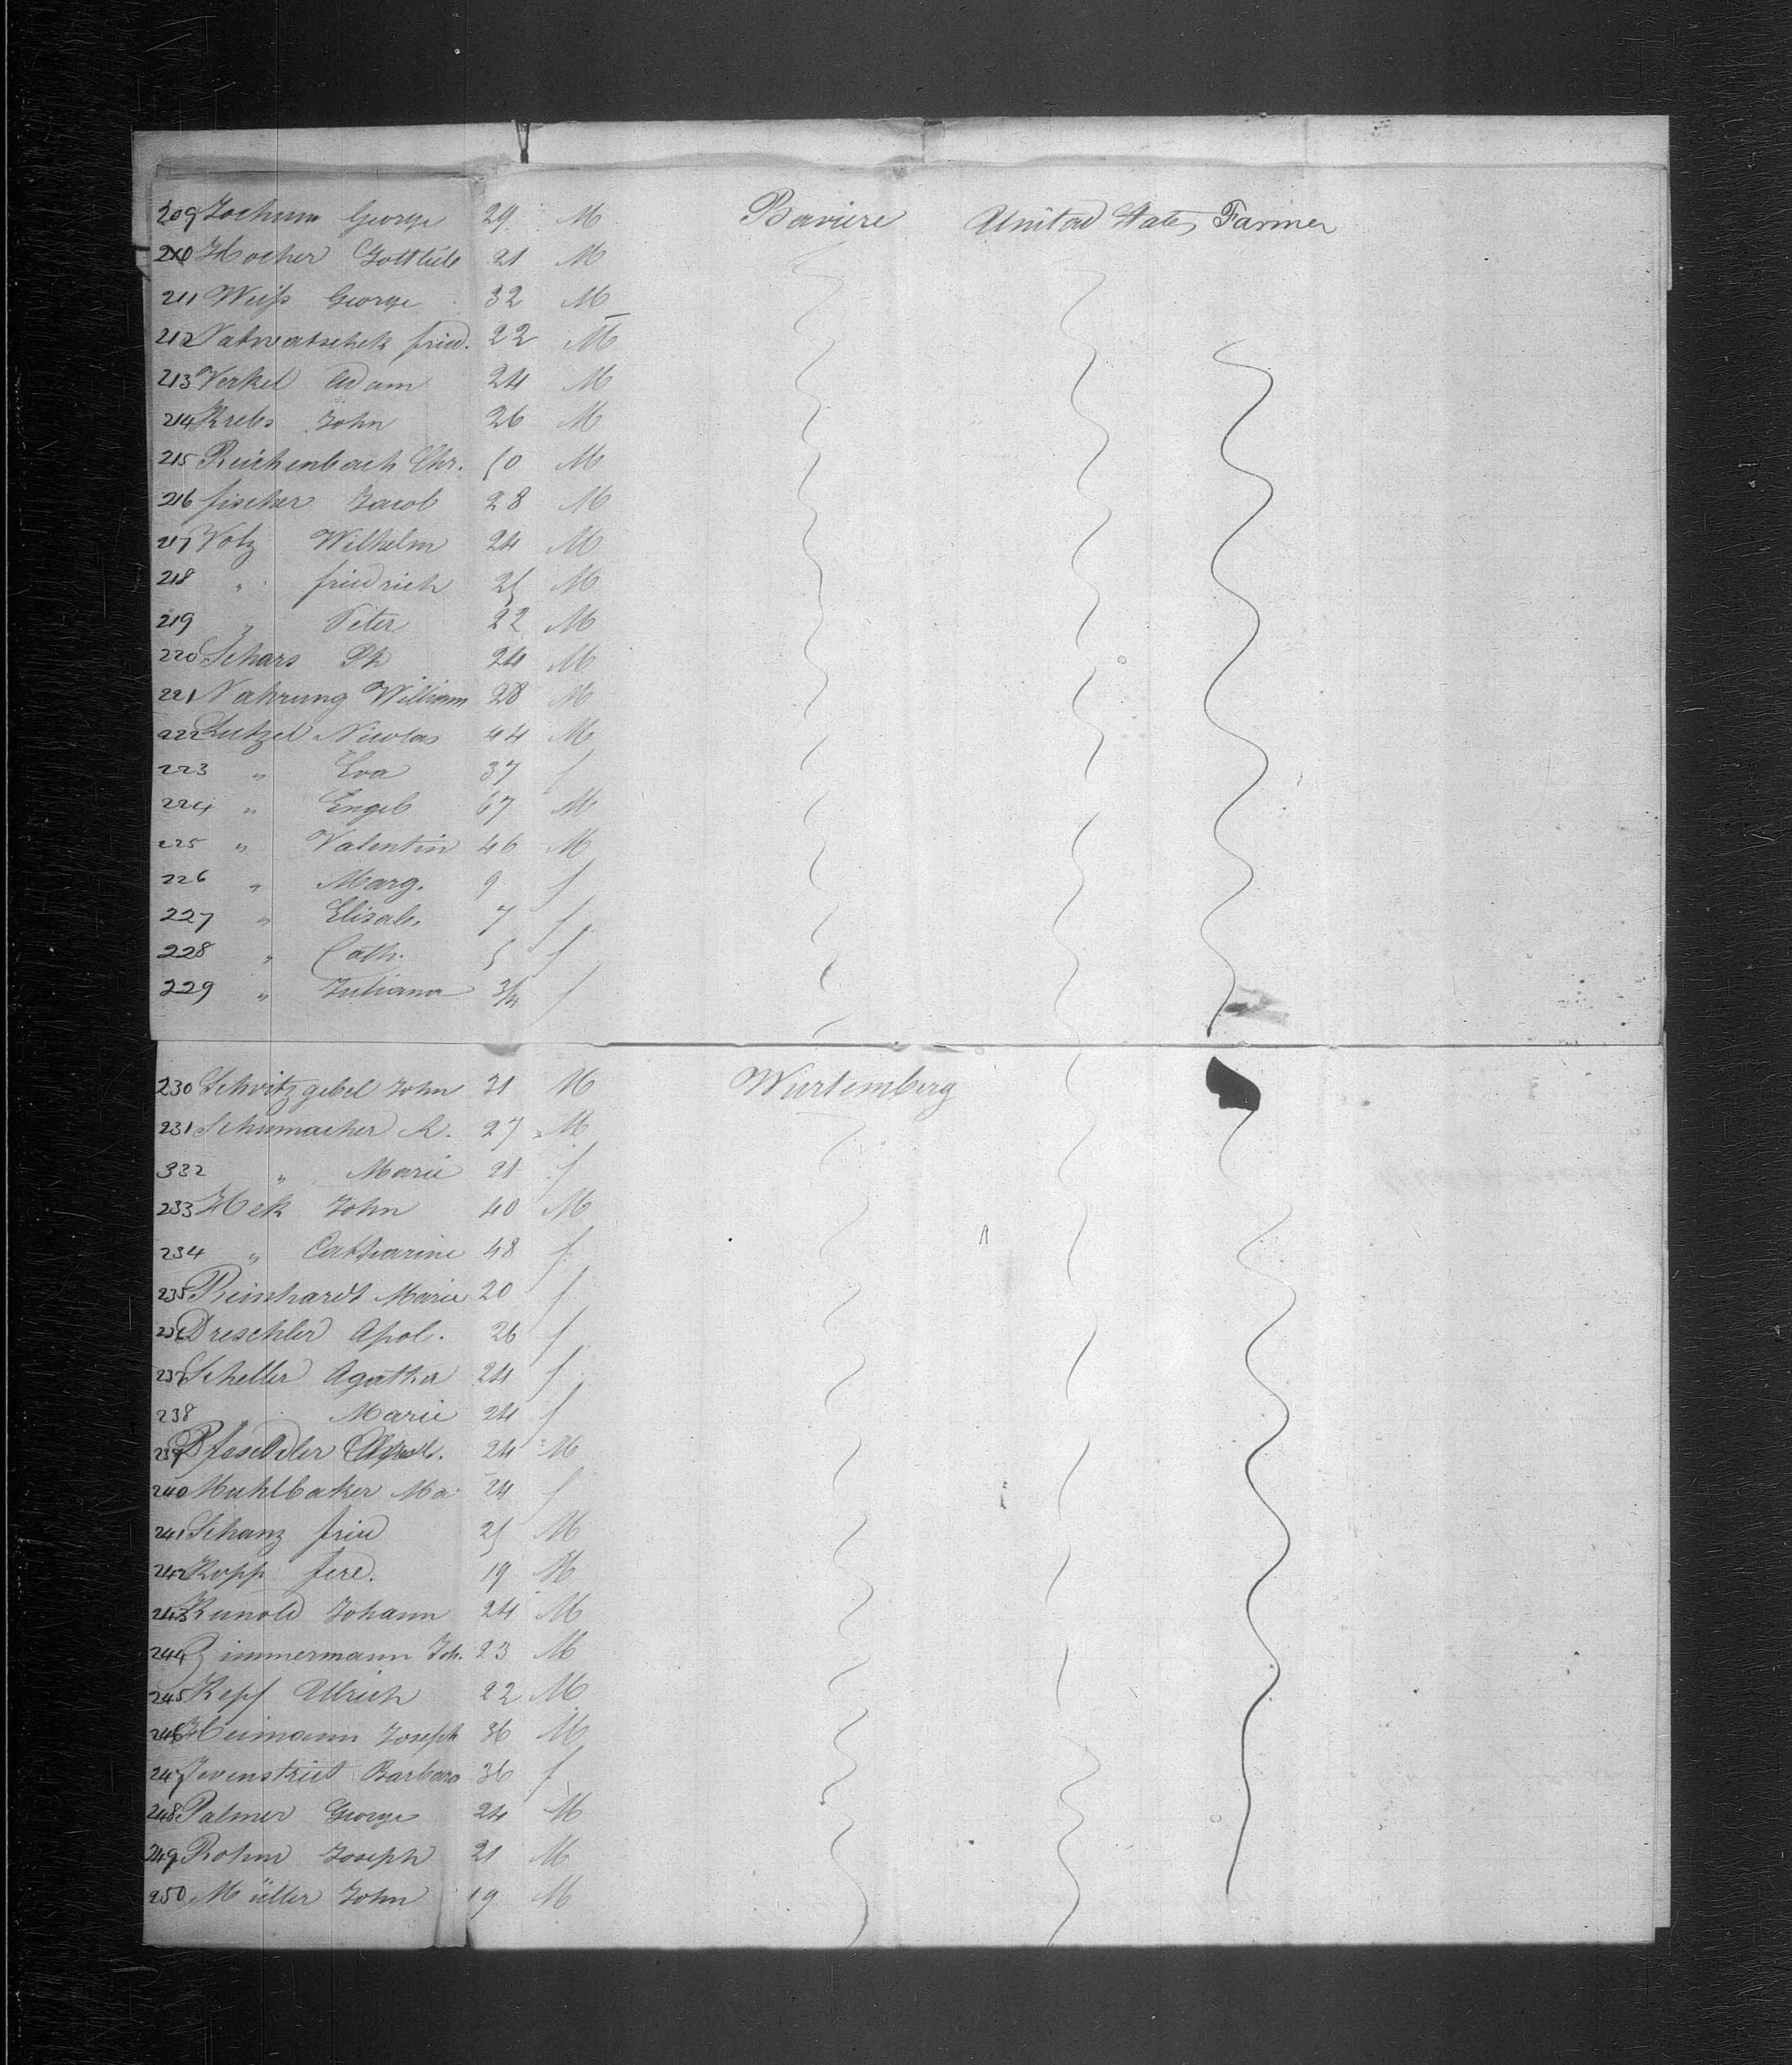 209 Jochum George 29 M Baviere United States Farmer
210 Hocher Gottlieb 21 M
211 Weiss George 32 M
212 fried. 22 M
213 Verkel Adam 24 M
214 Krebs John 26 M
215 Reichenbach Chr. 50 M
216 fischer Jacob 28 M
217 Volz Wilhelm 24 M
218 " friedrich 25 M
219 " Peter 22 M
220 Schars Ph 24 M
221 Nahrung William 28 M
222 Lutzel Nicolas 44 M
223 " Eva 37 f
224 " Engelb 67 M
225 " Valentin 46 M
226 " Marg. 9 f
227 " Elisab. 7 f
228 " Cath. 5 f
229 " Juliana 3/4 f
230 Schvitzgebel John 31 M Wurtemberg
231 Schumacher A. 27 M
332 " Marie 21 f
233 Hek John 40 M
234 " Catharine 48 f
235 Reinhardt Marie 20 f
236 Dreschler Apol. 26 f
237 Scheller Agatha 24 f
238 Marie 24 f
239 24 M
240 Muhlbaker Ma 24 f
241 Schanz fried 25 M
242 Kopp ferd. 19 M
243 Kunold Johann 24 M
244 Zimmermann Joh. 23 M
245 Kepf Ulrich 22 M
246 Heimann Joseph 36 M
247 Barbara 36 f
248 Palmer George 24 M
249 Rohm Joseph 21 M
250 Müller John 19 M